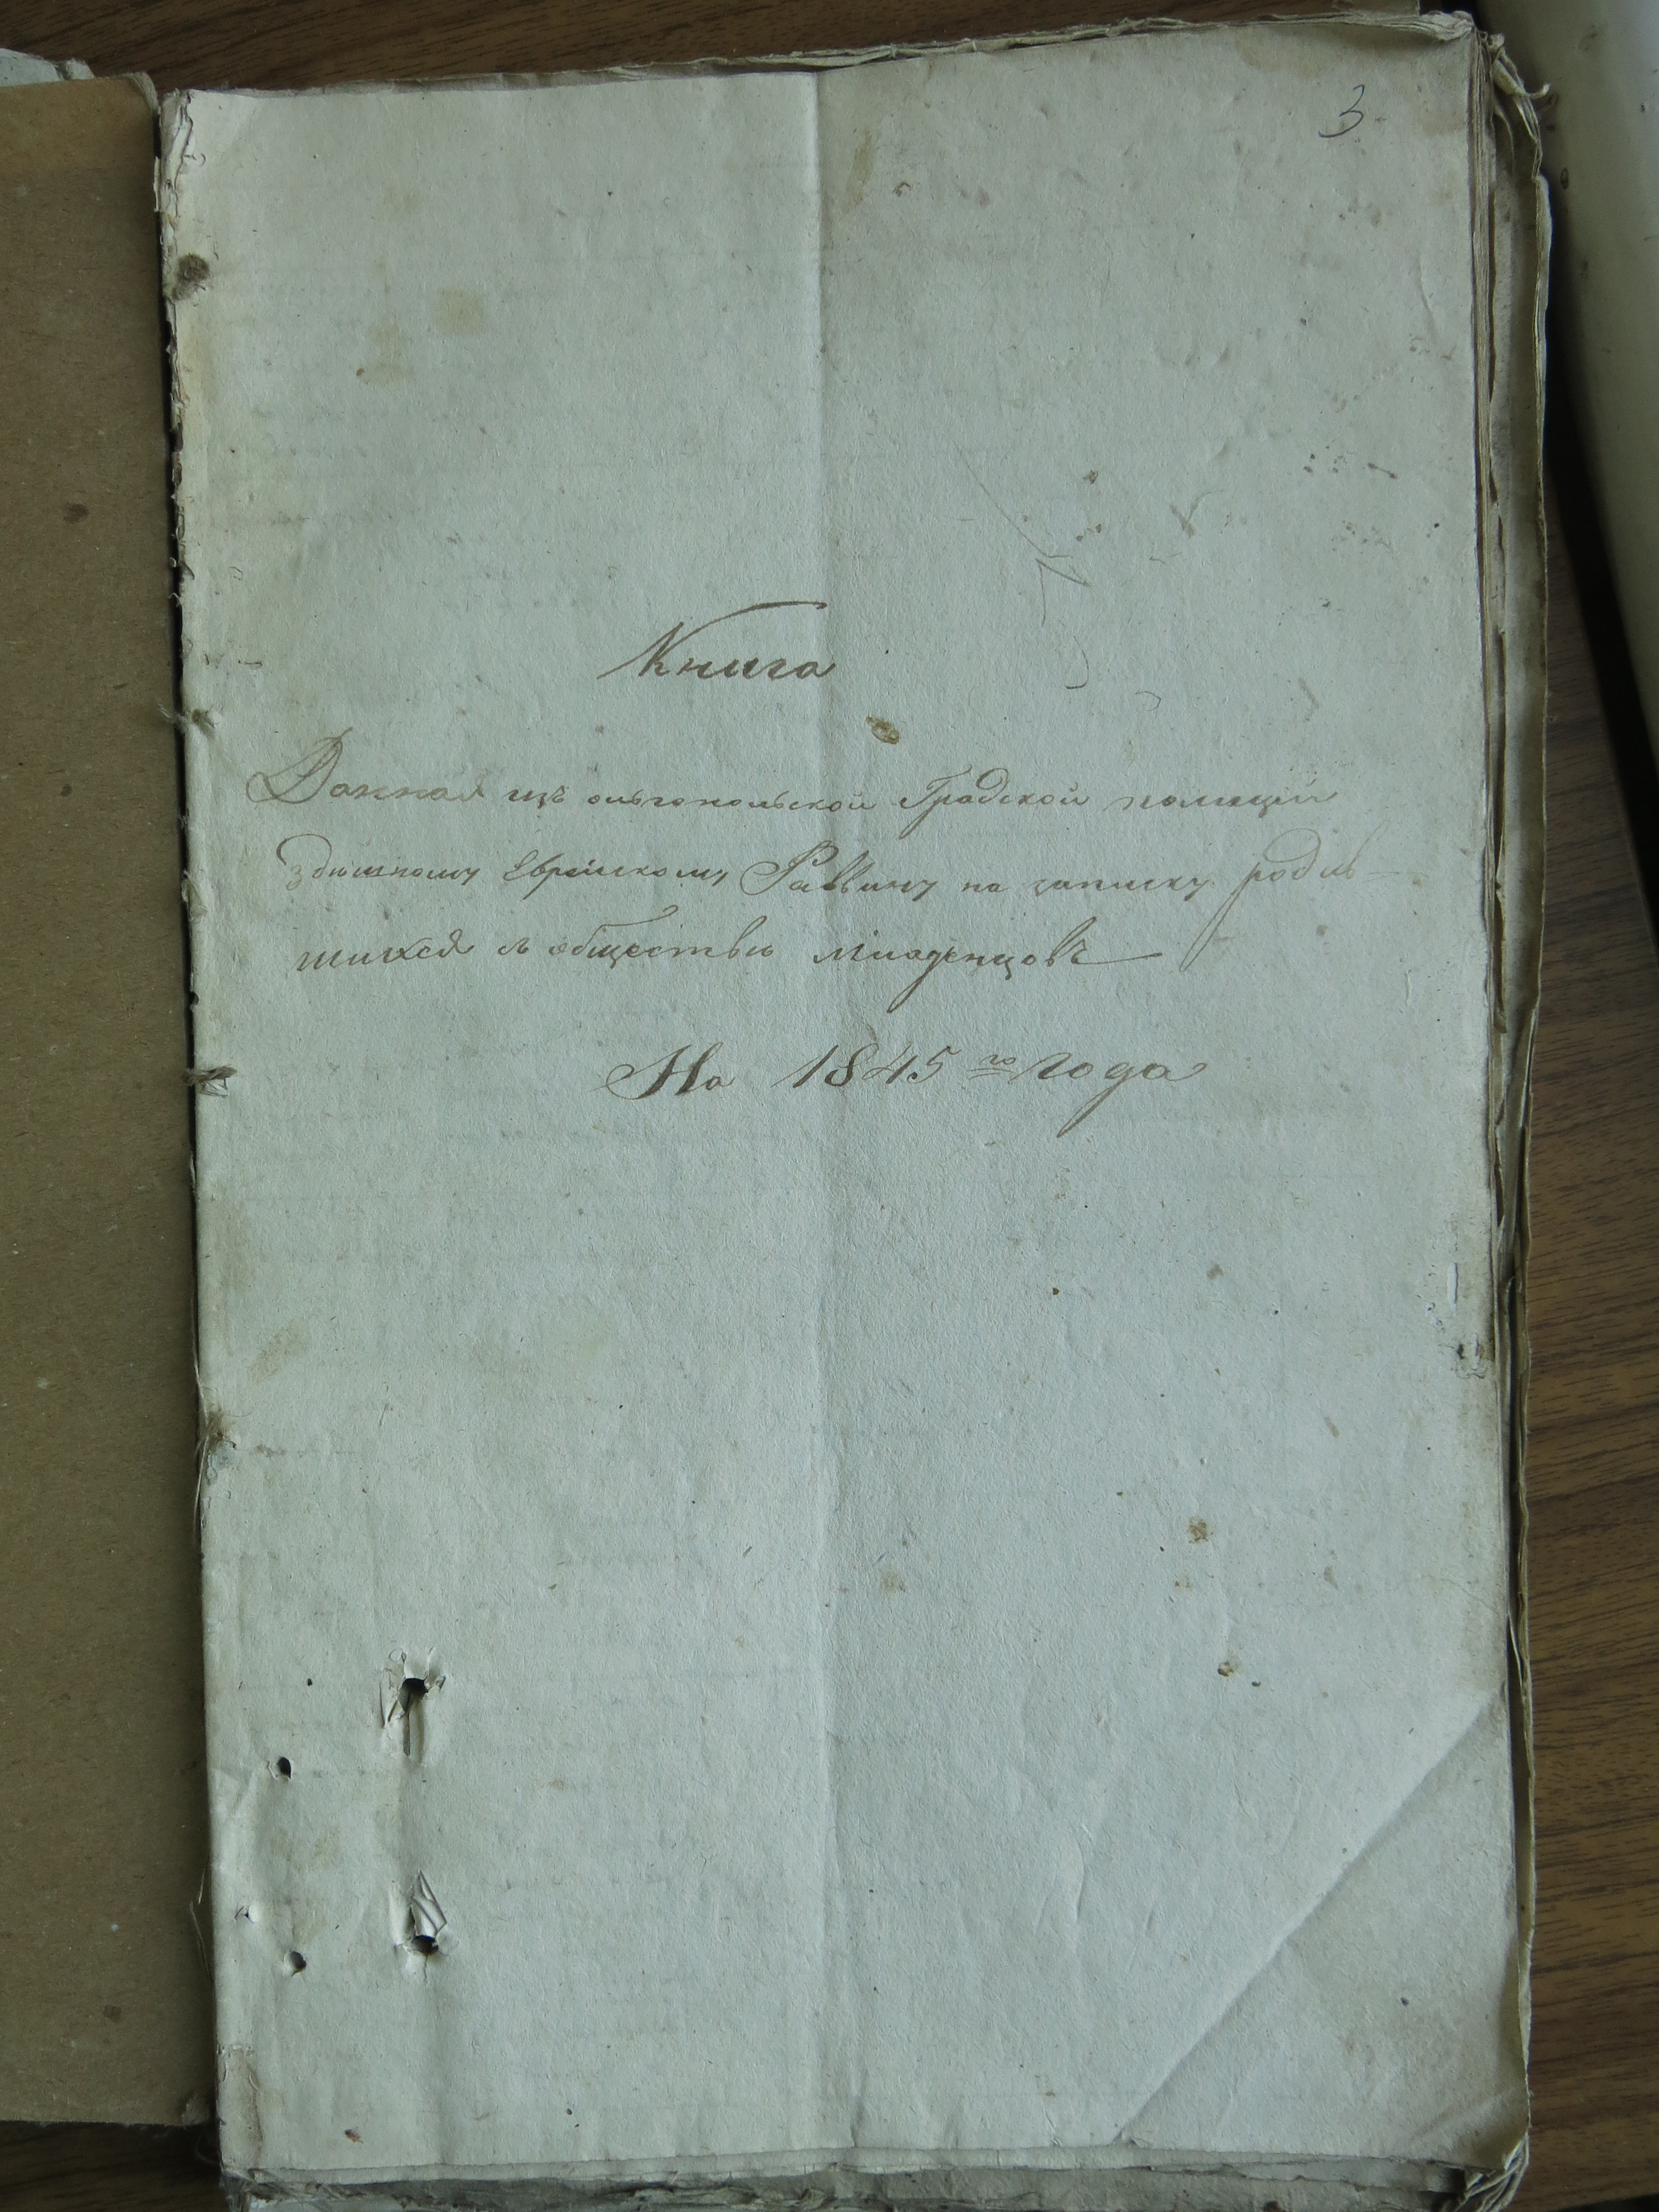 3
Книга
Данная изъ ольгопольской Градской полиции
здешнему Еврейскому Раввину на записку родив-
шихся в обществе младенцовъ
На 1845 го года